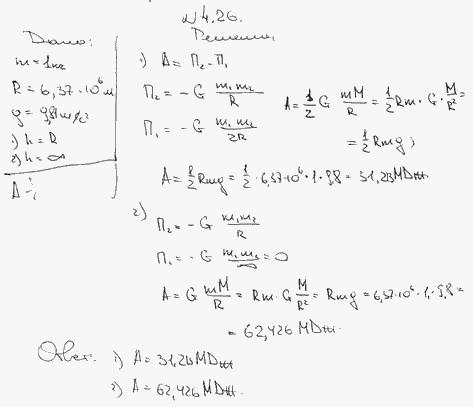 № 4.26.
Дано:
m = 1 кг
R = 6,37·10⁶ м
g = 9,81 м/с²
1) h = R
2) h = ∞
A - ?
Решение
1) A = П₂ - П₁
П₂ = - G m₁m₂/R
П₁ = - G m₁m₂/2R
A = 1/2 G mM/R = 1/2 Rm · G · M/R² =
= 1/2 Rmg ;
A = 1/2 Rmg = 1/2 · 6,37·10⁶ · 1 · 9,8 = 31,213 МДж.
2) П₂ = - G m₁m₂/R
П₁ = - G m₁m₂/∞ = 0
A = G mM/R = Rm · G M/R² = Rmg = 6,37·10⁶ · 1 · 9,8 =
= 62,426 МДж.
Ответ: 1) A = 31,213 МДж
2) A = 62,426 МДж.